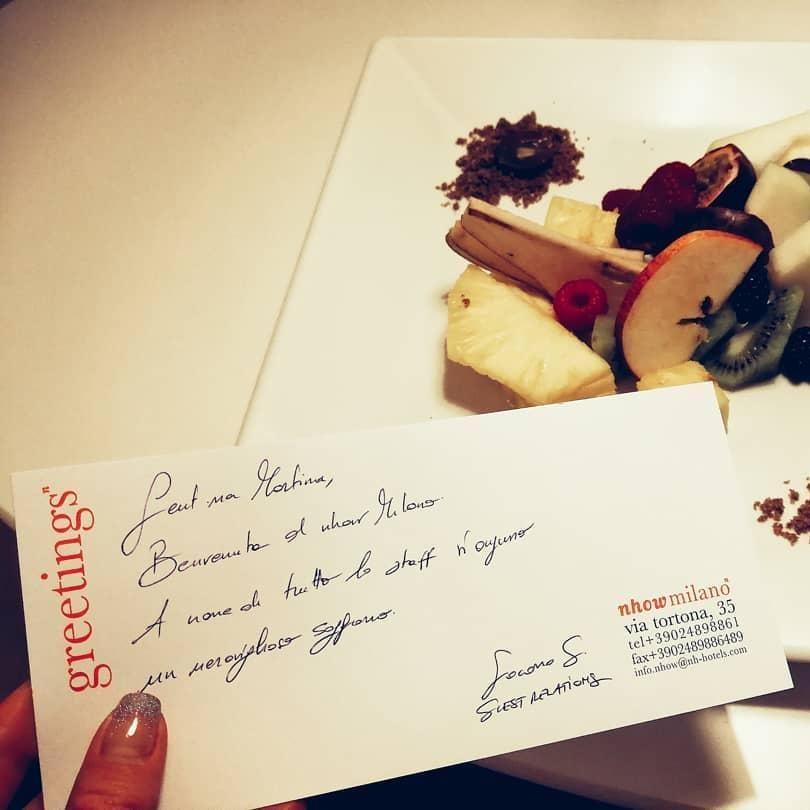 greetings"
Gent.ma Martina,
Benvenuta al nhow Milano.
A nome di tutto lo staff ti auguro
un meraviglioso soggiorno.
S.
GUEST RELATIONS
nhow milano
via tortona, 35
tel+39024898861
fax+3902489886489
info.nhow@nh-hotels.com